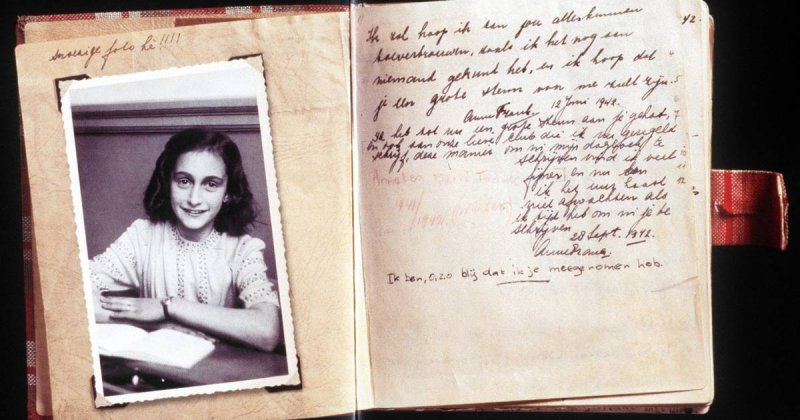 snoezige foto hè!!!!
42.
Ik zal hoop ik aan jou alles kunnen
toevertrouwen, zoals ik het nog aan
niemand gekund heb, en ik hoop dat
je een grote steun van me zult zijn.
Anne Frank. 12 Juni 1942.
Ik heb tot nu een grote steun aan je gehad,
en ook aan onze lieve club die ik nu geregeld
schrijf, deze manier om in mijn dagboek te
schrijven vind ik veel
fijner en nu kan
ik het uur haast
niet afwachten als
ik tijd heb om in je te
schrijven
28 Sept. 1942.
Anne Frank
Ik ben, o, zo blij dat ik je meegenomen heb.